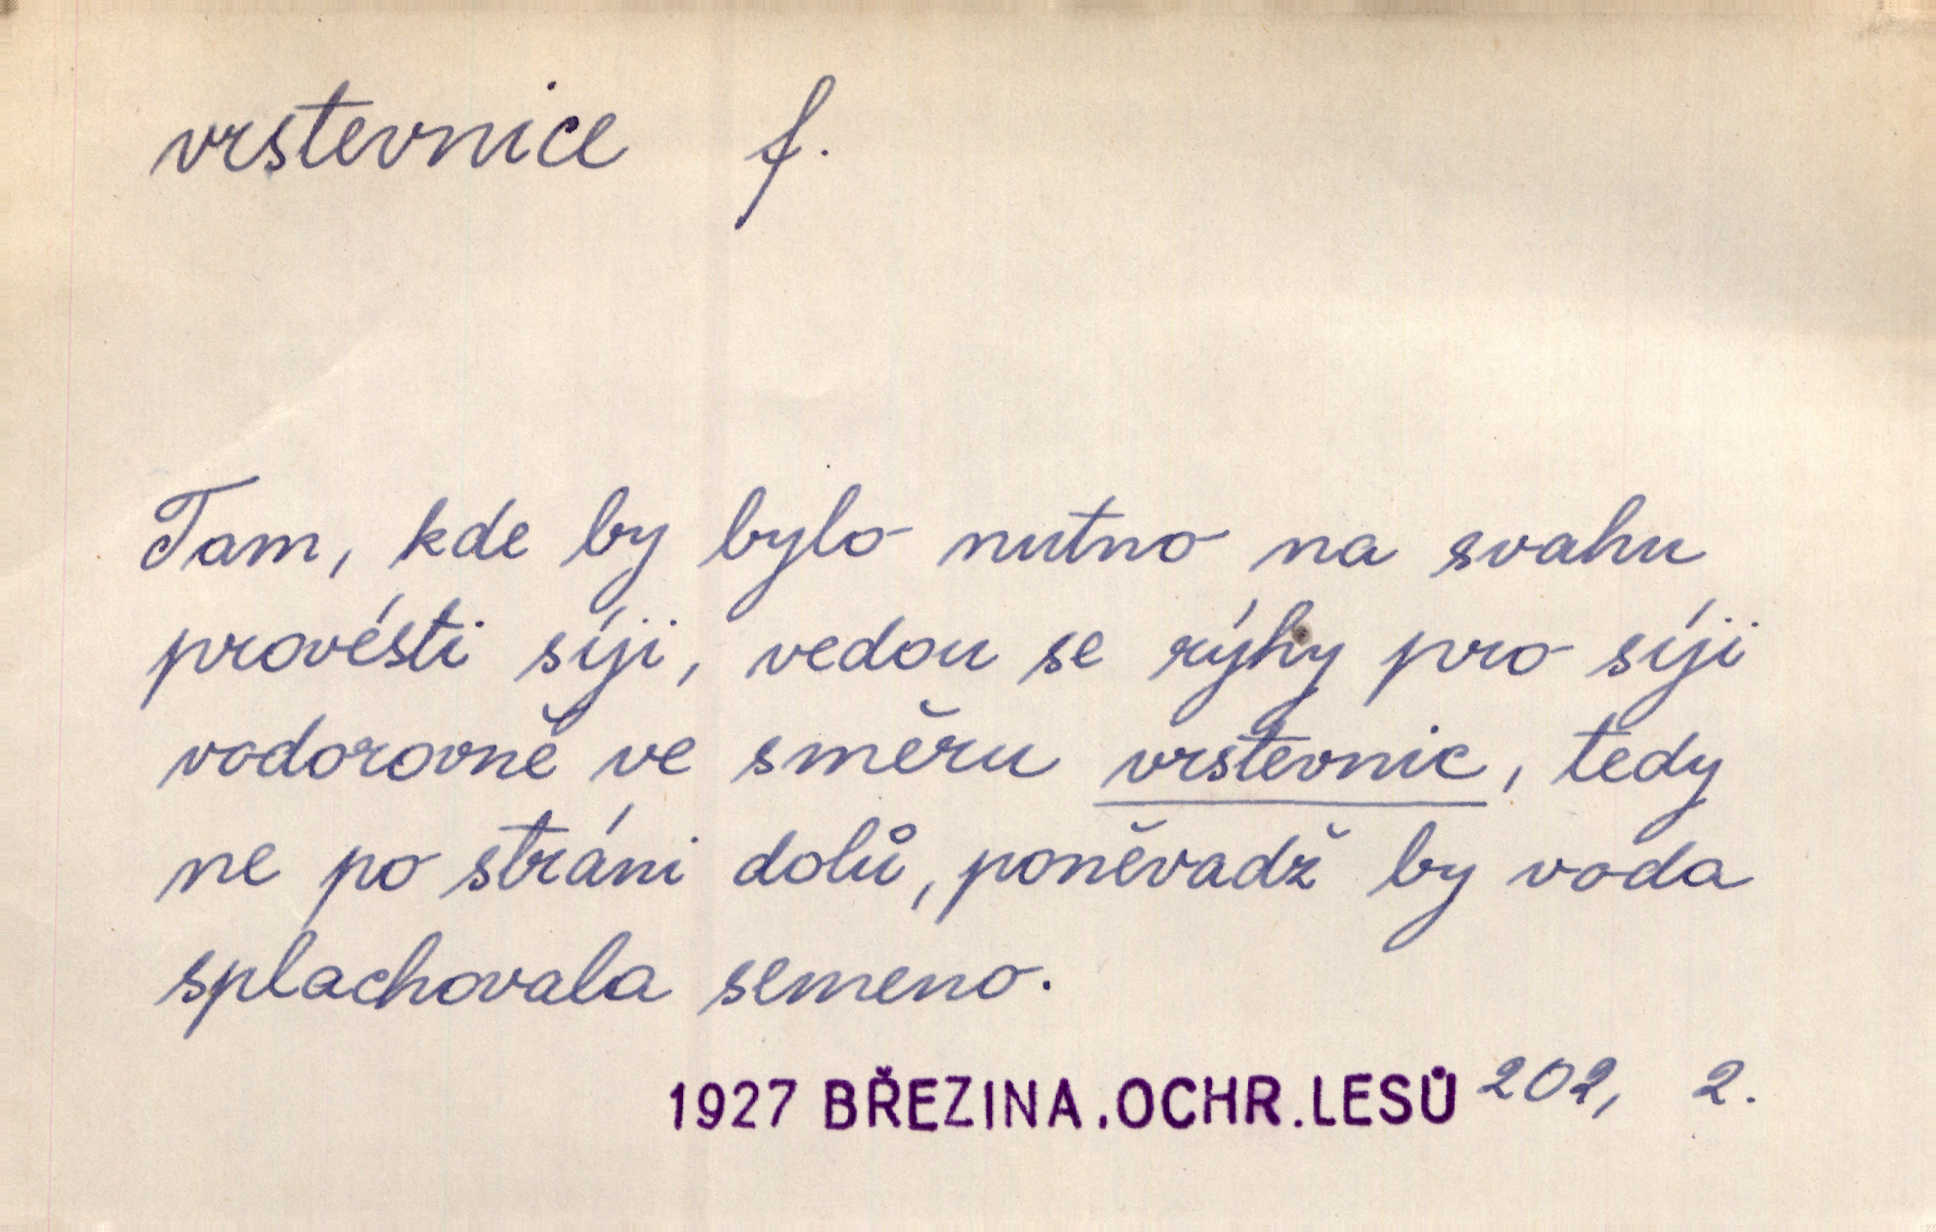 vrstevnice f.
Tam, kde by bylo nutno na svahu
provésti síji, vedou se rýhy pro síji
vodorovně ve směru vrstevnic, tedy
ne po stráni dolů, poněvadž by voda
splachovala semeno.
1927 BŘEZINA.OCHR.LESŮ 202, 2.